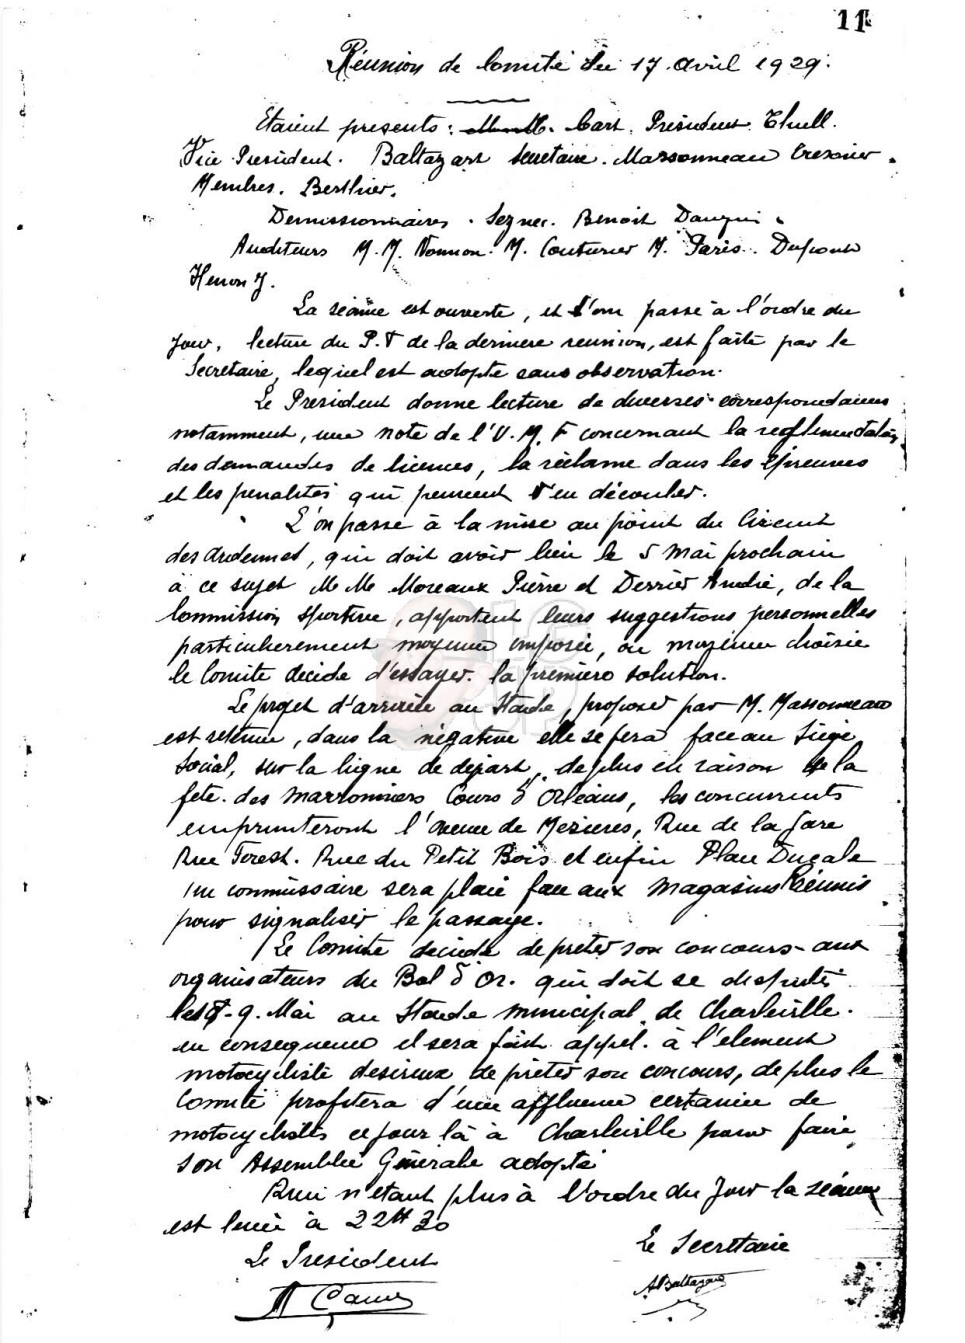 11
Réunion de Comité du 17 avril 1929.
Etaient presents: Cart. Président Thull.
Vice President. Baltazart Secretaire. Massonneau Tresorier.
Membres. Berthier.
Demissionnaires. Seznec. Benoit Dauqui.
Auditeurs M. M. Vonnon. M. Couturier M. Paris. Dupont
Henon J.
La séance est ouverte, et l'on passe à l'ordre du
Jour, lecture du P.V de la derniere reunion, est faite par le
Secretaire, lequel est adopte sans observation.
Le President donne lecture de diverses correspondances
notamment, une note de l'U.M.F concernant la reglementation
des demandes de licences, la réclame dans les épreuves
et les penalités qui peuvent s'en découler.
L'on passe à la mise au point du Circuit
des Ardennes, qui doit avoir lieu le 5 Mai prochain
à ce sujet M M Moreaux Pierre et Derrier André, de la
Commission Sportive, apportent leurs suggestions personnelles
particulierement moyenne imposée, ou moyenne choisie
le Comité decide d'essayer la première solution.
Le projet d'arrivée au Stade, proposer par M. Massonneau
est retenue, dans la négative elle se fera face au Siège
Social, sur la ligne de départ, de plus en raison de la
fete des marronniers Cours d'Orléans, les concurrents
emprunteront l'avenue de Mezieres, Rue de la Gare
Rue Forest. Rue du Petit Bois et enfin Place Ducale
un commissaire sera placé face aux Magasins Réunis
pour signaliser le passage.
Le Comité decide de preter son concours aux
organisateurs du Bol d'Or. qui doit se disputé
les 8-9. Mai au Stade municipal de Charleville.
en consequence il sera fait appel à l'element
motocycliste desireux de prêter son concours, de plus le
Comité profitera d'une affluence certaine de
motocyclistes ce jour là à Charleville pour faire
son Assemblée Générale adopté
Rien n'etant plus à l'ordre du Jour la séance
est levée à 22H 30
Le President
Le Secretaire
ABaltazart